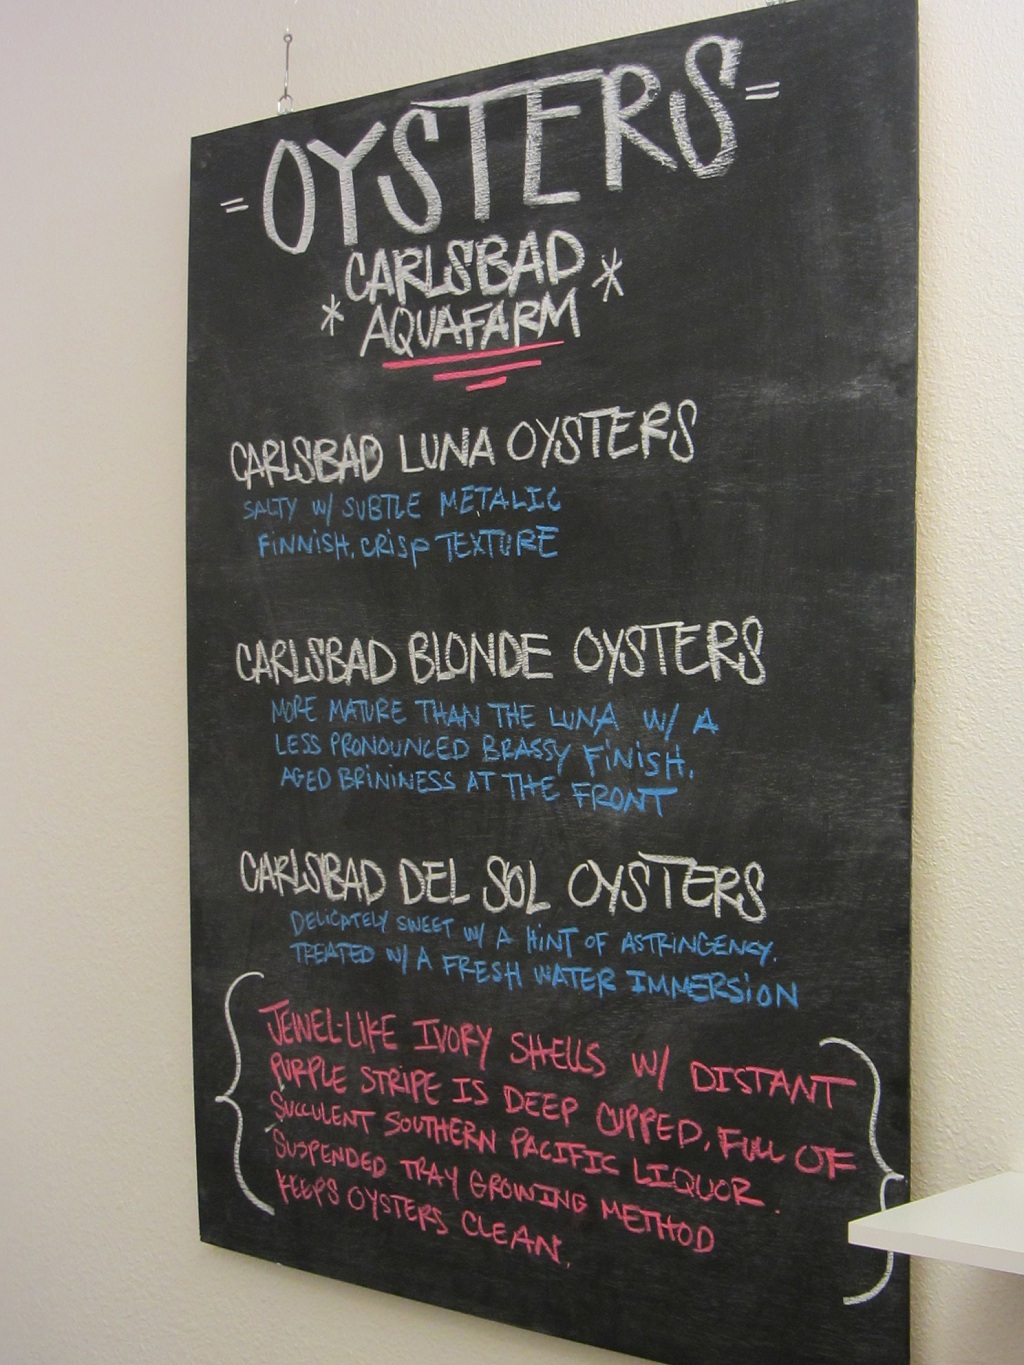 = OYSTERS =
* CARLSBAD *
AQUAFARM
CARLSBAD LUNA OYSTERS
SALTY W/ SUBTLE METALIC
FINNISH, CRISP TEXTURE
CARLSBAD BLONDE OYSTERS
MORE MATURE THAN THE LUNA W/ A
LESS PRONOUNCED BRASSY FINISH,
AGED BRININESS AT THE FRONT
CARLSBAD DEL SOL OYSTERS
DELICATELY SWEET W/ A HINT OF ASTRINGENCY.
TREATED W/ A FRESH WATER IMMERSION
{ JEWEL-LIKE IVORY SHELLS W/ DISTANT
PURPLE STRIPE IS DEEP CUPPED, FULL OF
SUCCULENT SOUTHERN PACIFIC LIQUOR.
SUSPENDED TRAY GROWING METHOD
KEEPS OYSTERS CLEAN. }